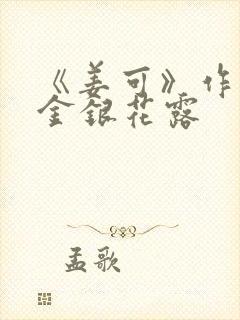 《姜可》作
金銀花露
孟歌